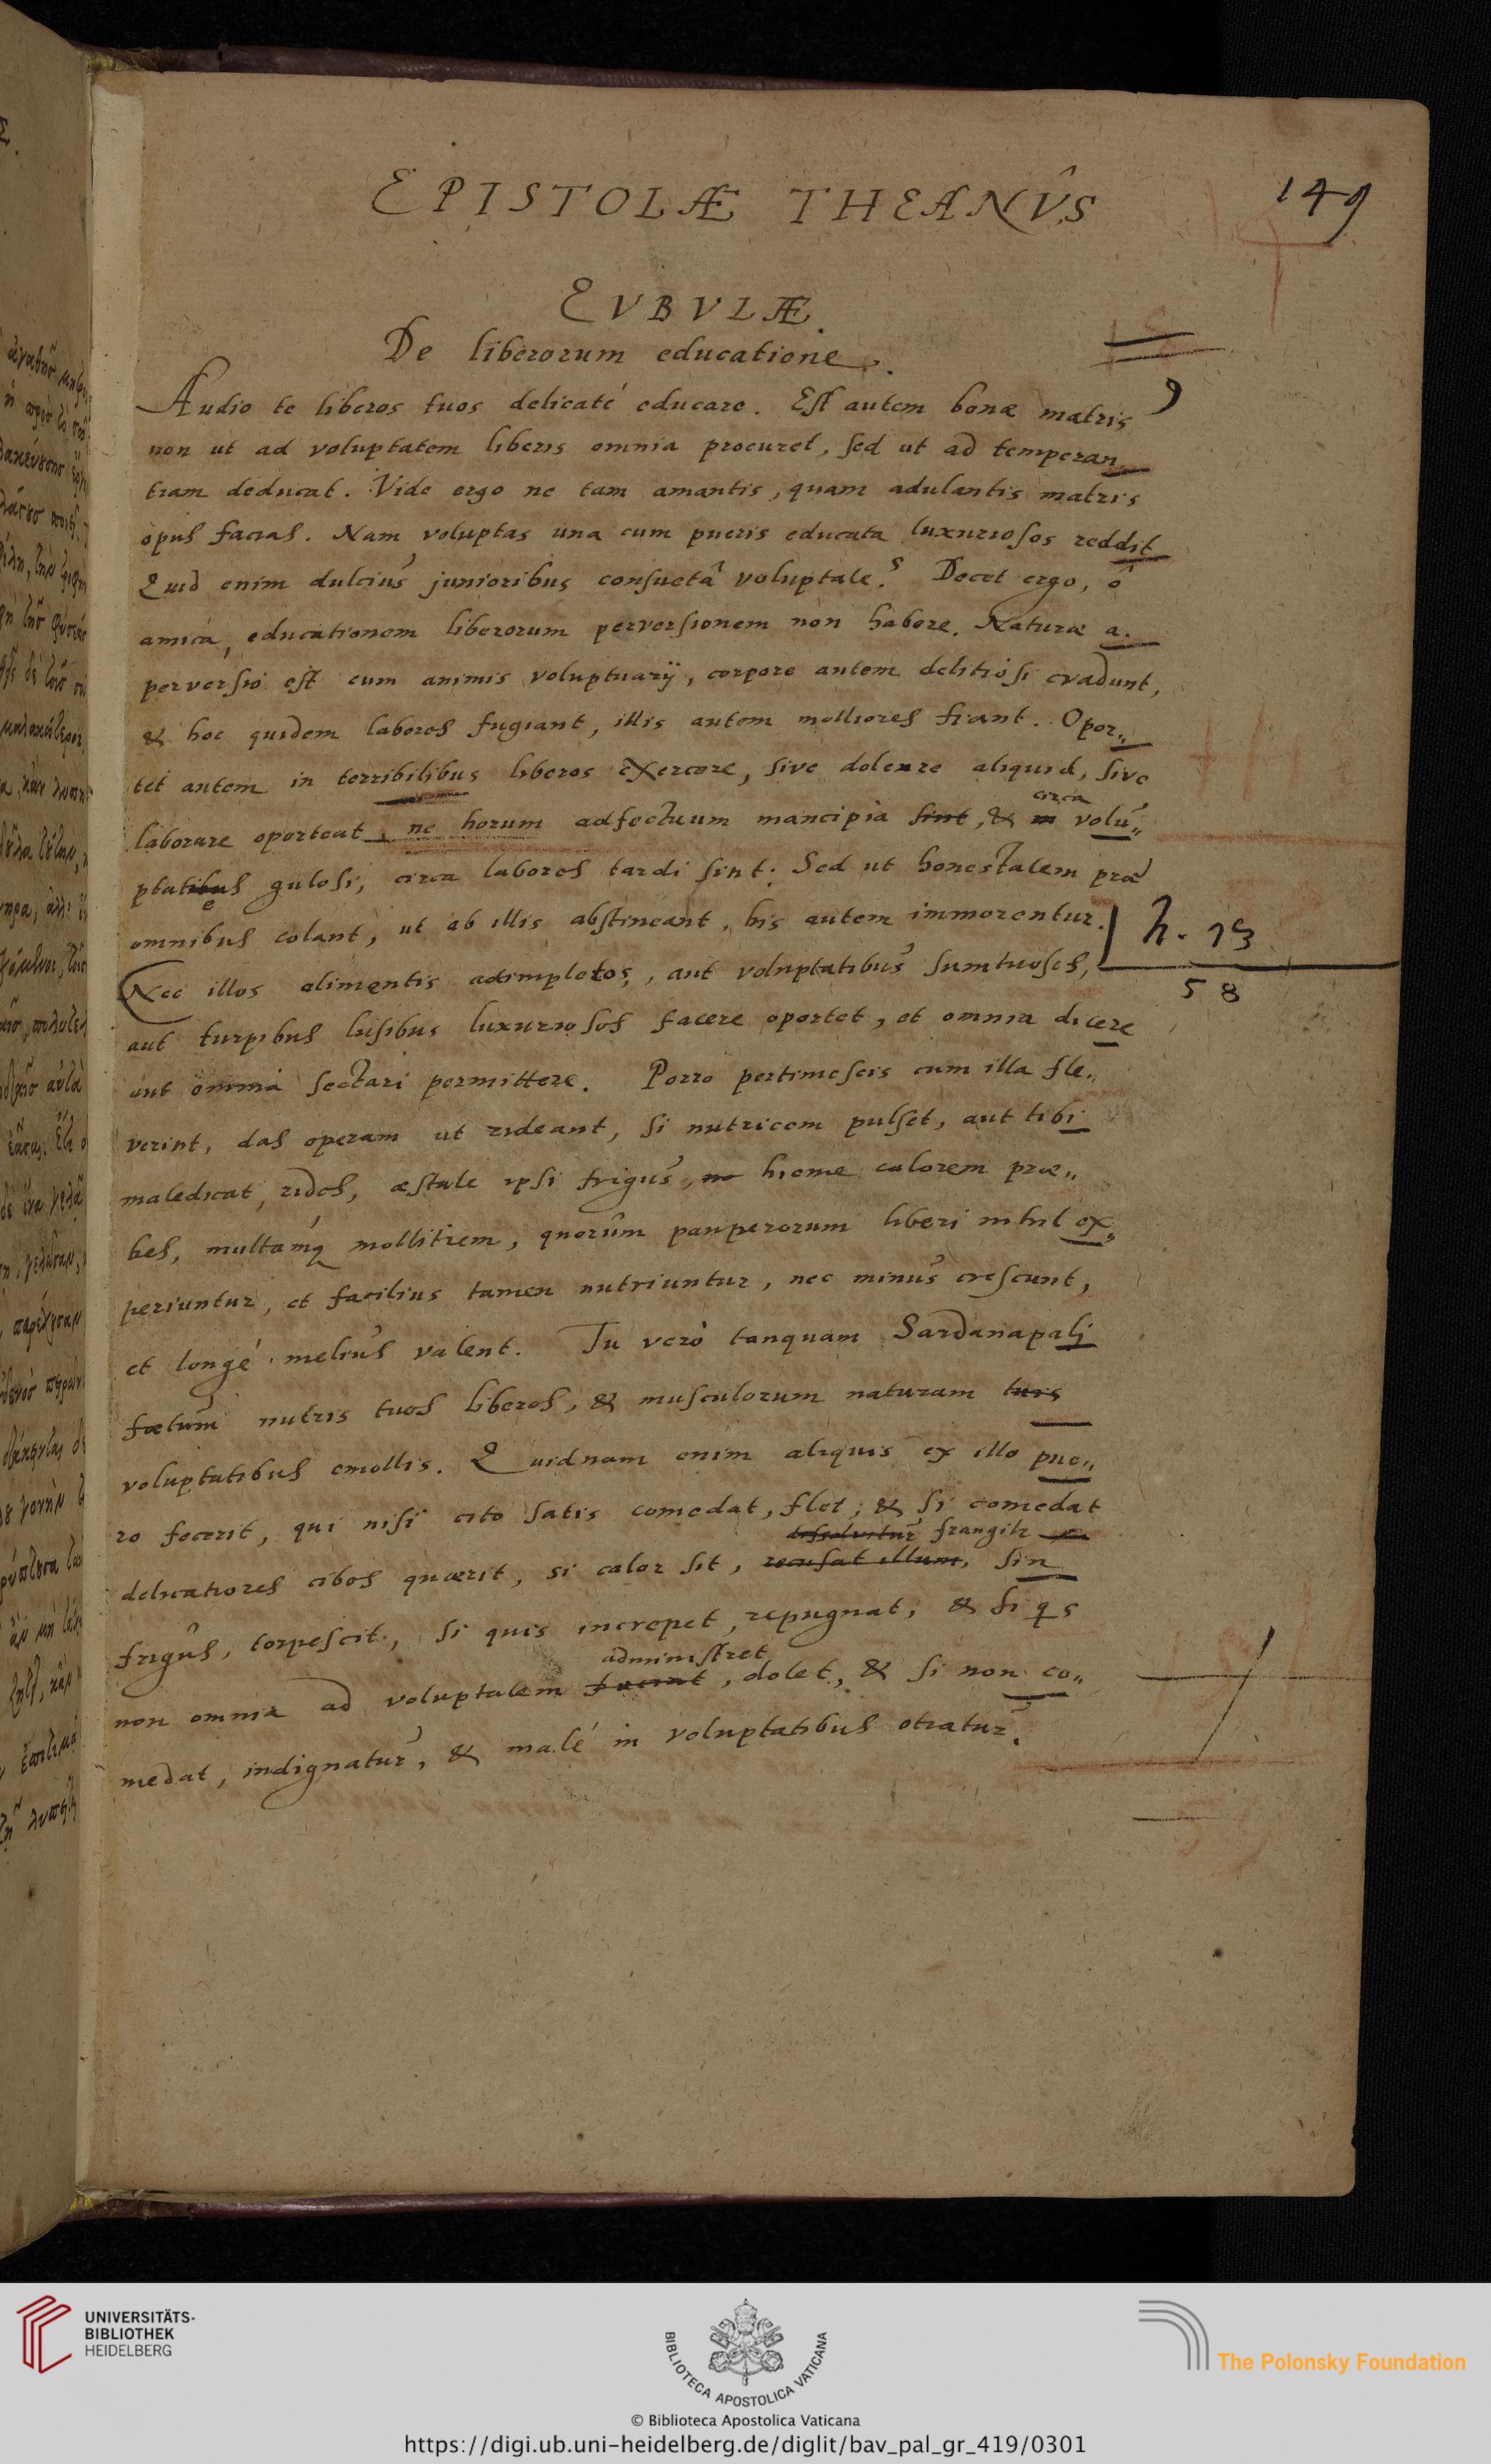 EPISTOLÆ THEANÛS
149
EVBVLÆ.
De liberorum educatione.
Audio te liberos tuos delicaté educare. Est autem bonæ matris
non ut ad voluptatem liberis omnia procuret, sed ut ad temperan
tiam deducat. Vide ergo ne tam amantis, quam adulantis matris
opus facias. Nam voluptas una cum pueris educata luxuriosos reddit
Quid enim dulcius junioribus consuetâ voluptate? Decet ergo, ô
amica, educationem liberorum perversionem non habere. Naturæ a.
perversio est cum animis voluptuarij, corpore autem delitiosi evadunt,
& hoc quidem labores fugiant, illis autem molliores fiant. Opor„
tet autem in terribilibus liberos exercere, sive dolere aliquid, sive
circa
laborare oporteat, ne horum adfectuum mancipia sint, & in volu„
ptatibus gulosi, circa labores tardi sint: Sed ut honestatem præ
e
omnibus colant, ut ab illis abstineant, his autem immorentur.
h. 13
Nec illos alimentis adimpletos, aut voluptatibus sumtuosos,
58
aut turpibus lusibus luxuriosos facere oportet, et omnia dicere
aut omnia sectari permittere. Porro pertimescis cum illa fle„
verint, das operam ut rideant, si nutricem pulset, aut tibi
maledicat, rides, æstate ipsi frigus, hieme calorem præ„
bes, multamq mollitiem, quorûm pauperorum liberi nihil ex„
periuntur, et facilius tamen nutriuntur, nec minus crescunt,
et longé melius valent. Tu verò tanquam Sardanapali
fœtum nutris tuos liberos, & musculorum naturam tuis
voluptatibus emollis. Quidnam enim aliquis ex illo pue„
ro fecerit, qui nisi cito satis comedat, flet; & si comedat
dissolvitur frangitr
delicatiores cibos quærit, si calor sit, recusat illum, sin
frigus, torpescit, si quis increpet, repugnat; & si qs
administret
non omnia ad voluptatem faciat, dolet, & si non co„
medat, indignatur, & malé in voluptatibus otiatur.
UNIVERSITÄTS-
BIBLIOTHEK
HEIDELBERG
BIBLIOTECA APOSTOLICA VATICANA
The Polonsky Foundation
© Biblioteca Apostolica Vaticana
https://digi.ub.uni-heidelberg.de/diglit/bav_pal_gr_419/0301